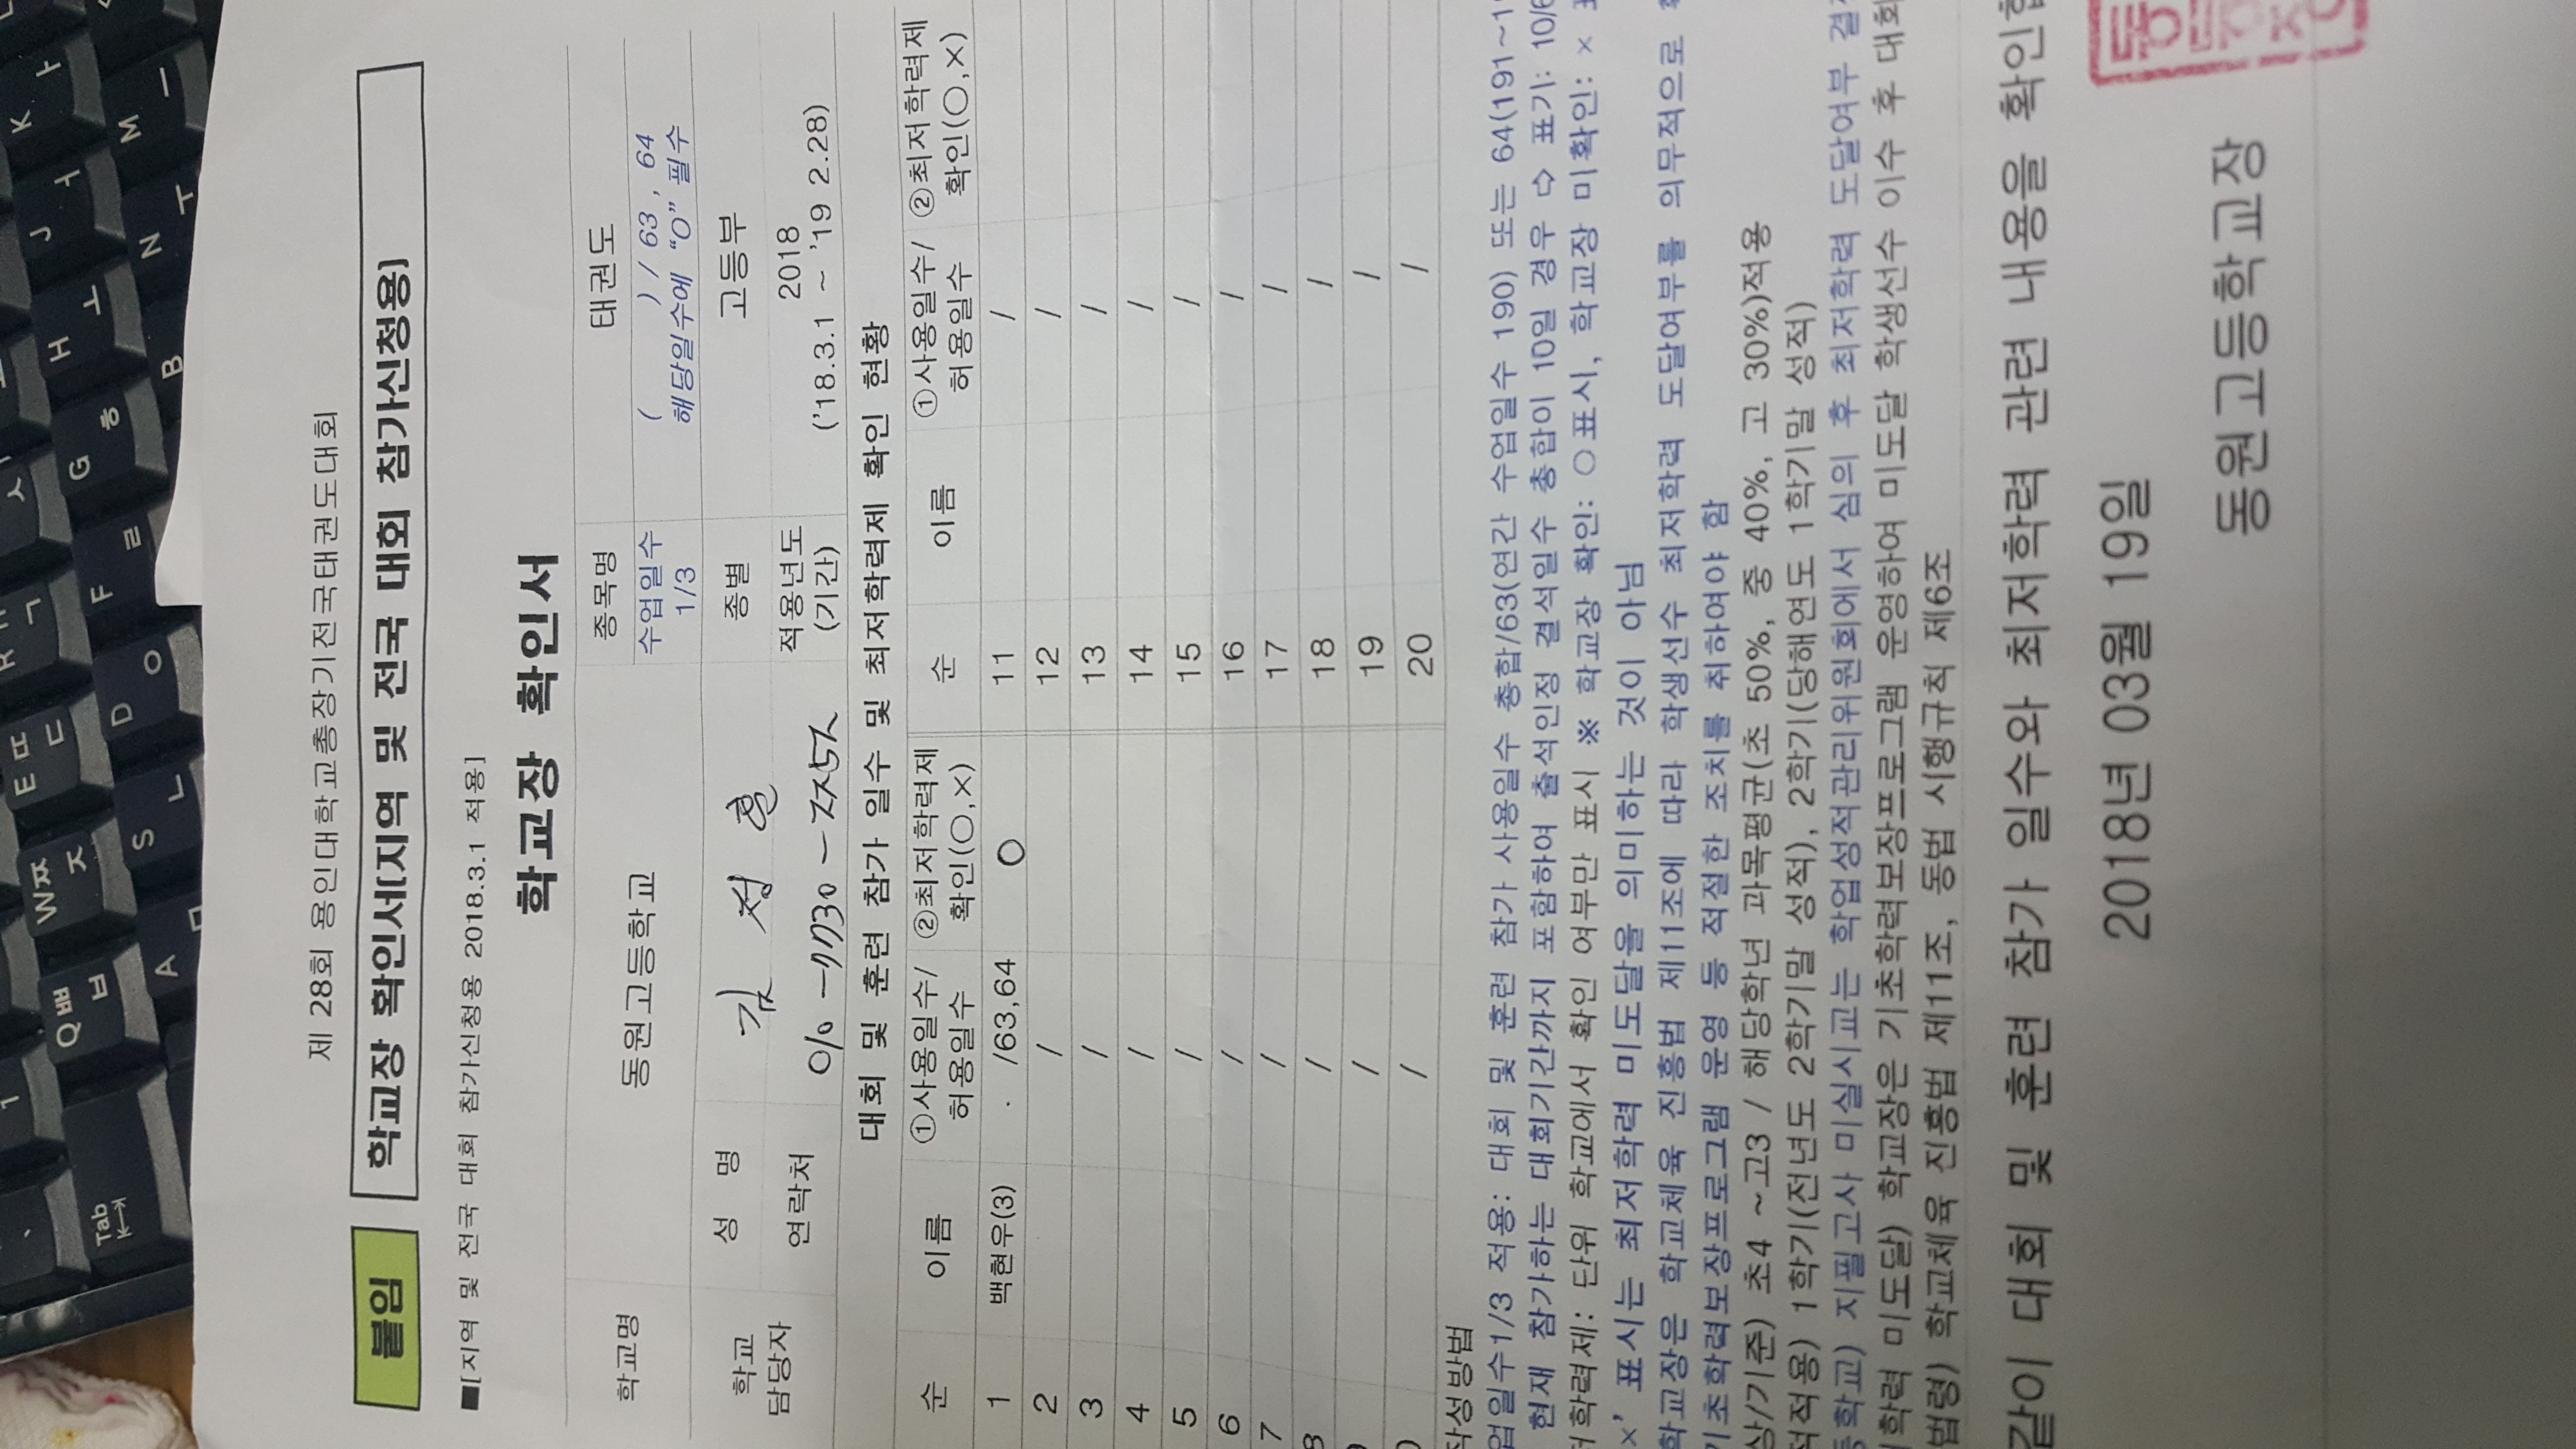 제 28회 용인대학교총장기전국태권도대회
붙임 학교장 확인서[지역 및 전국 대회 참가신청용]
■[지역 및 전국 대회 참가신청용 2018.3.1 적용]
학교장 확인서
학교명 동원고등학교 종목명 태권도
수업일수 1/3 ( ) / 63, 64
해당일수에 "O" 필수
학교 담당자 성 명 김 정 훈 종별 고등부
연락처 적용년도 (기간) 2018
('18.3.1 ~ '19 2.28)
대회 및 훈련 참가 일수 및 최저학력제 확인 현황
순 이름 ①사용일수/허용일수 ②최저학력제 확인(○,×) 순 이름 ①사용일수/허용일수 ②최저학력제 확인(○,×)
1 백현우(3) /63,64 O 11 /
2 / 12 /
3 / 13 /
4 / 14 /
5 / 15 /
6 / 16 /
7 / 17 /
/ 18 /
/ 19 /
/ 20 /
작성방법
업일수1/3 적용: 대회 및 훈련 참가 사용일수 총합/63(연간 수업일수 190) 또는 64(191~1
현재 참가하는 대회기간까지 포함하여 출석인정 결석일수 총합이 10일 경우 ⇨ 표기: 10/6
저학력제: 단위 학교에서 확인 여부만 표시 ※ 학교장 확인: ○표시, 학교장 미확인: ×
×' 표시는 최저학력 미도달을 의미하는 것이 아님
학교장은 학교체육 진흥법 제11조에 따라 학생선수 최저학력 도달여부를 의무적으로
기초학력보장프로그램 운영 등 적절한 조치를 취하여야 함
상/기준) 초4 ~고3 / 해당학년 과목평균(초 50%, 중 40%, 고 30%)적용
적적용) 1학기(전년도 2학기말 성적), 2학기(당해연도 1학기말 성적)
등학교) 지필고사 미실시교는 학업성적관리위원회에서 심의 후 최저학력 도달여부 결
저학력 미도달) 학교장은 기초학력보장프로그램 운영하여 미도달 학생선수 이수 후 대회
법령) 학교체육 진흥법 제11조, 동법 시행규칙 제6조
같이 대회 및 훈련 참가 일수와 최저학력 관련 내용을 확인합
2018년 03월 19일
동원고등학교장
Tab
Q ㅃ ㅂ
W ㅉ ㅈ
E ㄸ ㄷ
R ㄱ
A ㅁ
S ㄴ
D ㅇ
F ㄹ
G ㅎ
H ㅗ
J ㅓ
K ㅏ
B
N ㅜ
M ㅡ